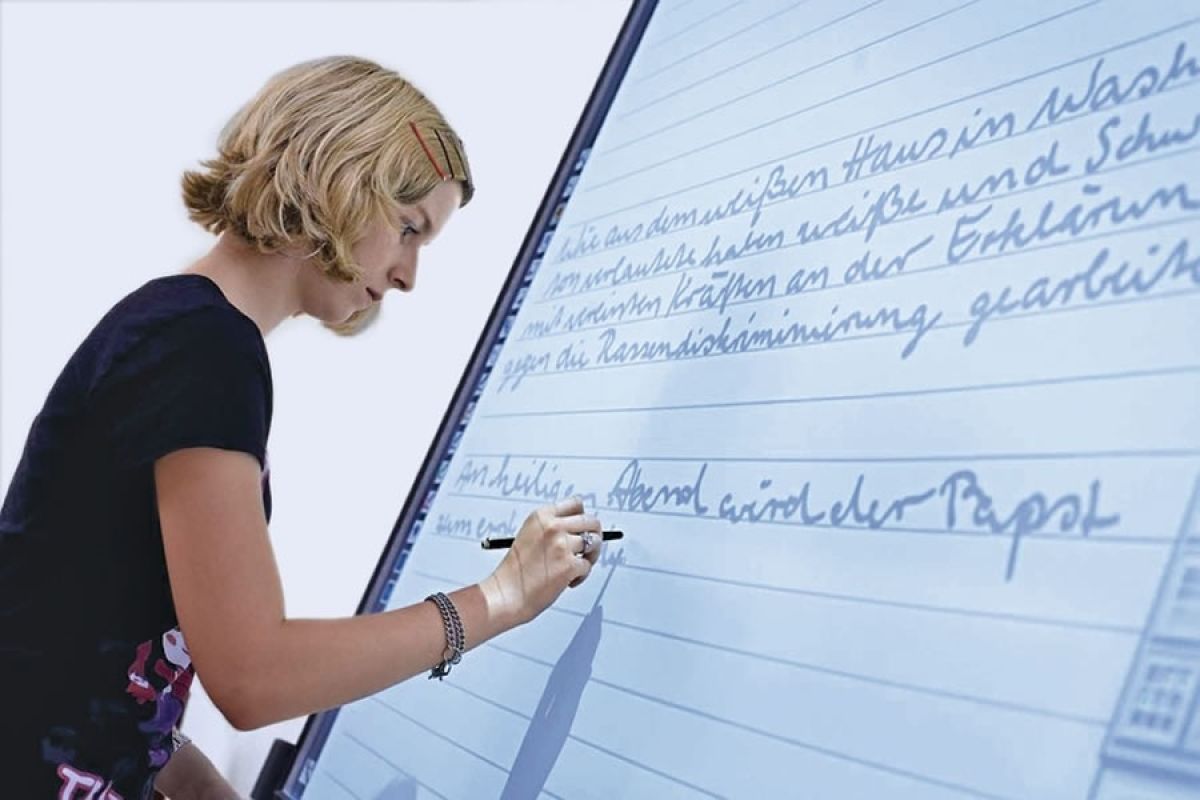 Wie aus dem weißen Haus in Wash
ton verlautete haben weiße und Schw
mit vereinten Kräften an der Erklärun
gegen die Rassendiskriminirung gearbeit
Am heiligen Abend wird der Papst
zum